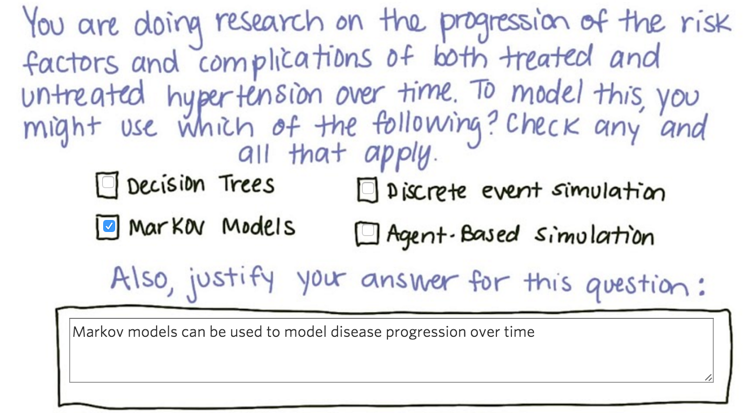 You are doing research on the progression of the risk
factors and complications of both treated and
untreated hypertension over time. To model this, you
might use which of the following? Check any and
all that apply.
Decision Trees
Discrete event simulation
Markov Models
Agent-Based simulation
Also, justify your answer for this question:
Markov models can be used to model disease progression over time